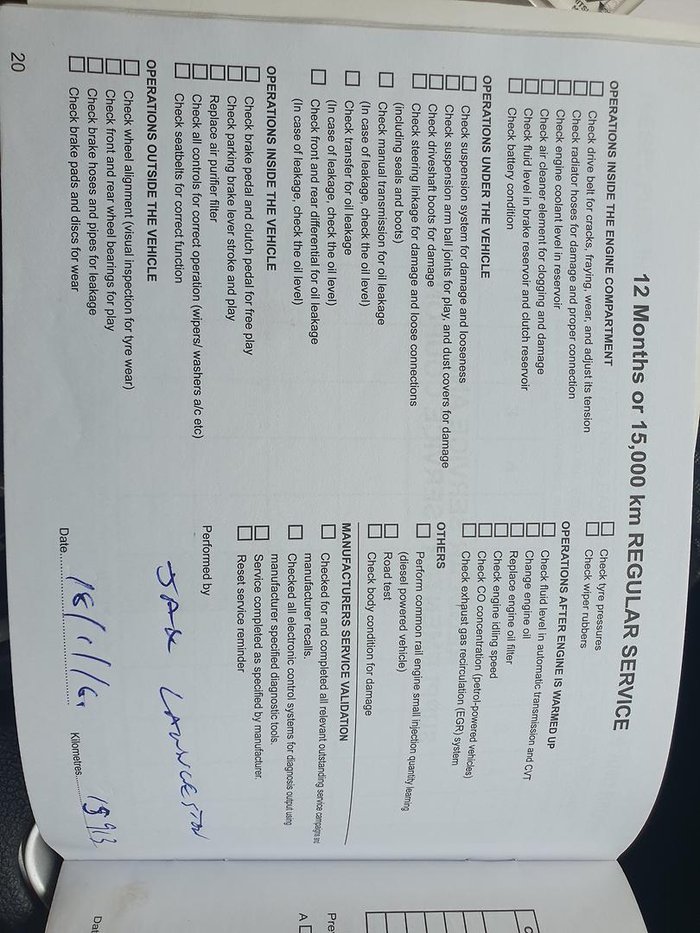 12 Months or 15,000 km REGULAR SERVICE
OPERATIONS INSIDE THE ENGINE COMPARTMENT
Check drive belt for cracks, fraying, wear, and adjust its tension
Check radiator hoses for damage and proper connection
Check engine coolant level in reservoir
Check air cleaner element for clogging and damage
Check fluid level in brake reservoir and clutch reservoir
Check battery condition
OPERATIONS UNDER THE VEHICLE
Check suspension system for damage and looseness
Check suspension arm ball joints for play, and dust covers for damage
Check driveshaft boots for damage
Check steering linkage for damage and loose connections
(including seals and boots)
Check manual transmission for oil leakage
(In case of leakage, check the oil level)
Check transfer for oil leakage
(In case of leakage, check the oil level)
Check front and rear differential for oil leakage
(In case of leakage, check the oil level)
OPERATIONS INSIDE THE VEHICLE
Check brake pedal and clutch pedal for free play
Check parking brake lever stroke and play
Replace air purifier filter
Check all controls for correct operation (wipers/ washers a/c etc)
Check seatbelts for correct function
OPERATIONS OUTSIDE THE VEHICLE
Check wheel alignment (visual inspection for tyre wear)
Check front and rear wheel bearings for play
Check brake hoses and pipes for leakage
Check brake pads and discs for wear
20
Check tyre pressures
Check wiper rubbers
OPERATIONS AFTER ENGINE IS WARMED UP
Check fluid level in automatic transmission and CVT
Change engine oil
Replace engine oil filter
Check engine idling speed
Check CO concentration (petrol-powered vehicles)
Check exhaust gas recirculation (EGR) system
OTHERS
Perform common rail engine small injection quantity learning
(diesel powered vehicle)
Road test
Check body condition for damage
MANUFACTURERS SERVICE VALIDATION
Checked for and completed all relevant outstanding service campaigns and
manufacturer recalls.
Checked all electronic control systems for diagnosis output using
manufacturer specified diagnostic tools.
Service completed as specified by manufacturer.
Reset service reminder
Performed by
JAX LAUNCESTON
Date 18/1/19. Kilometres 19913
Pre
A
Dat